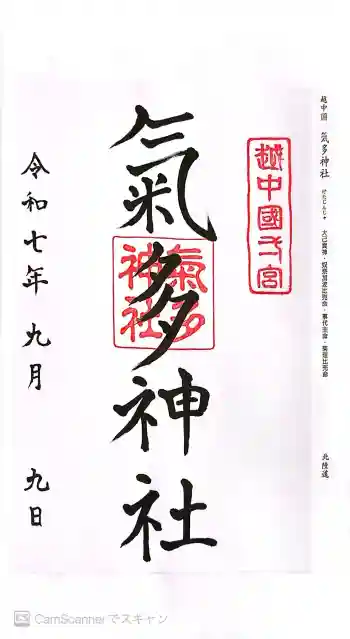 越中國 気多神社 けたじんじゃ 大己貴神・奴奈加波比売命・事代主命・菊理比売命 北陸道
越中國一宮
氣多神社
氣多
神社
令和七年 九月 九日
CamScanner でスキャン